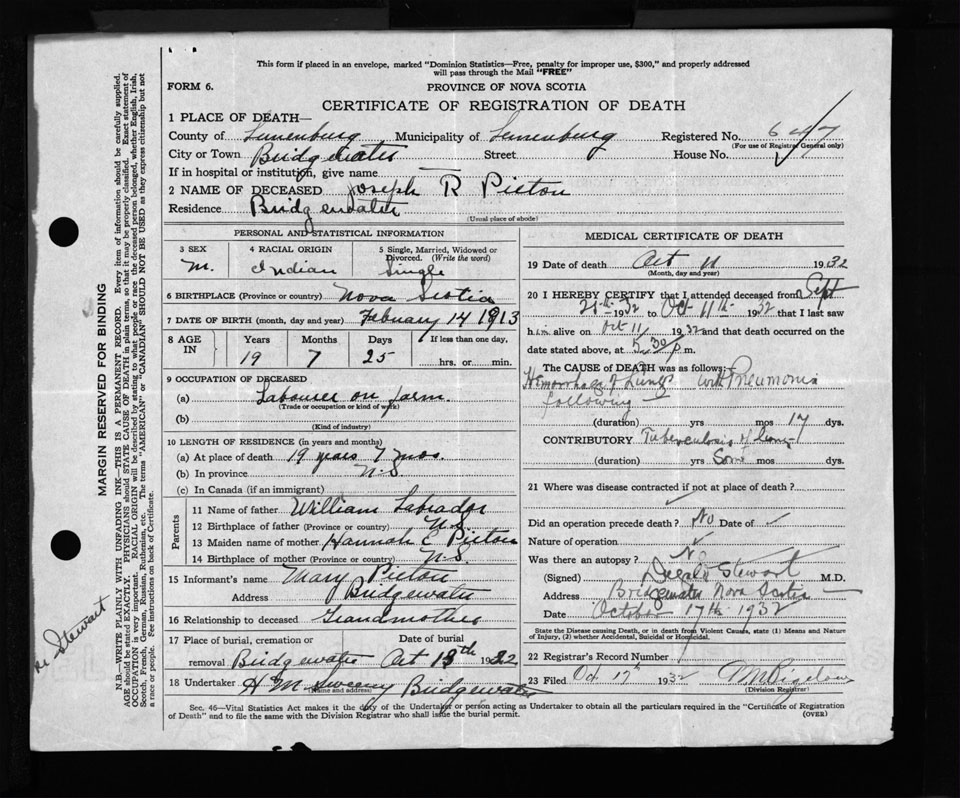 This form if placed in an envelope, marked "Dominion Statistics—Free, penalty for improper use, $300," and properly addressed
will pass through the Mail "FREE"
FORM 6.
PROVINCE OF NOVA SCOTIA
CERTIFICATE OF REGISTRATION OF DEATH
1 PLACE OF DEATH—
County of Lunenburg Municipality of Lunenburg Registered No. 647
(For use of Registrar General only)
City or Town Bridgewater Street House No.
If in hospital or institution, give name
2 NAME OF DECEASED Joseph R Picton
Residence Bridgewater
(Usual place of abode)
PERSONAL AND STATISTICAL INFORMATION
3 SEX 4 RACIAL ORIGIN 5 Single, Married, Widowed or
Divorced. (Write the word)
M. Indian Single
6 BIRTHPLACE (Province or country) Nova Scotia
7 DATE OF BIRTH (month, day and year) Febuary 14 1913
8 AGE IN Years Months Days If less than one day,
19 7 25 hrs. or min.
9 OCCUPATION OF DECEASED
(a) Labourer on farm.
(Trade or occupation or kind of work)
(b)
(Kind of industry)
10 LENGTH OF RESIDENCE (in years and months)
(a) At place of death 19 years 7 mos
(b) In province N.S
(c) In Canada (if an immigrant)
Parents
11 Name of father William Labrador
12 Birthplace of father (Province or country) N.S
13 Maiden name of mother Hannah E Picton
14 Birthplace of mother (Province or country) N.S.
15 Informant's name Mary Picton
Address Bridgewater
16 Relationship to deceased Grandmother
17 Place of burial, cremation or Date of burial
removal Bridgewater Oct 13th 1932
18 Undertaker H M Sweeny Bridgewater
(Name and address)
MEDICAL CERTIFICATE OF DEATH
19 Date of death Oct 11 1932
(Month, day and year)
20 I HEREBY CERTIFY that I attended deceased from Sept
1932 to Oct 11th 1932 that I last saw
him alive on Oct 11 1932 and that death occurred on the
date stated above, at 5.30 p.m.
The CAUSE OF DEATH was as follows:
Hemorrhage of Lungs with Pneumonia
following
(duration) yrs mos 17 dys.
CONTRIBUTORY Tuberculosis of Lung
(duration) yrs Some mos dys.
21 Where was disease contracted if not at place of death?
Did an operation precede death? No Date of
Nature of operation
Was there an autopsy? No
(Signed) Stewart M.D.
Address Bridgewater Nova Scotia
Date October 17th 1932
State the Disease causing Death, or in death from Violent Causes, state (1) Means and Nature
of Injury, (2) whether Accidental, Suicidal or Homicidal.
22 Registrar's Record Number
23 Filed Oct 17th 1932
(Division Registrar)
Sec. 46—Vital Statistics Act makes it the duty of the Undertaker or person acting as Undertaker to obtain all the particulars required in the "Certificate of Registration
of Death" and to file the same with the Division Registrar who shall issue the burial permit. (OVER)
MARGIN RESERVED FOR BINDING
N.B.—WRITE PLAINLY WITH UNFADING INK—THIS IS A PERMANENT RECORD. Every item of information should be carefully supplied.
AGE should be stated EXACTLY. PHYSICIANS should STATE CAUSE OF DEATH in plain terms, so that it may be properly classified. Exact statement of
OCCUPATION is very important. RACIAL ORIGIN will be described by stating to what people or race the deceased person belonged, whether English, Irish,
Scotch, French, German, Russian, Ruthenian, etc. The terms "AMERICAN" or "CANADIAN" SHOULD NOT BE USED as they express citizenship but not
a race or people. See instructions on back of Certificate.
Stewart